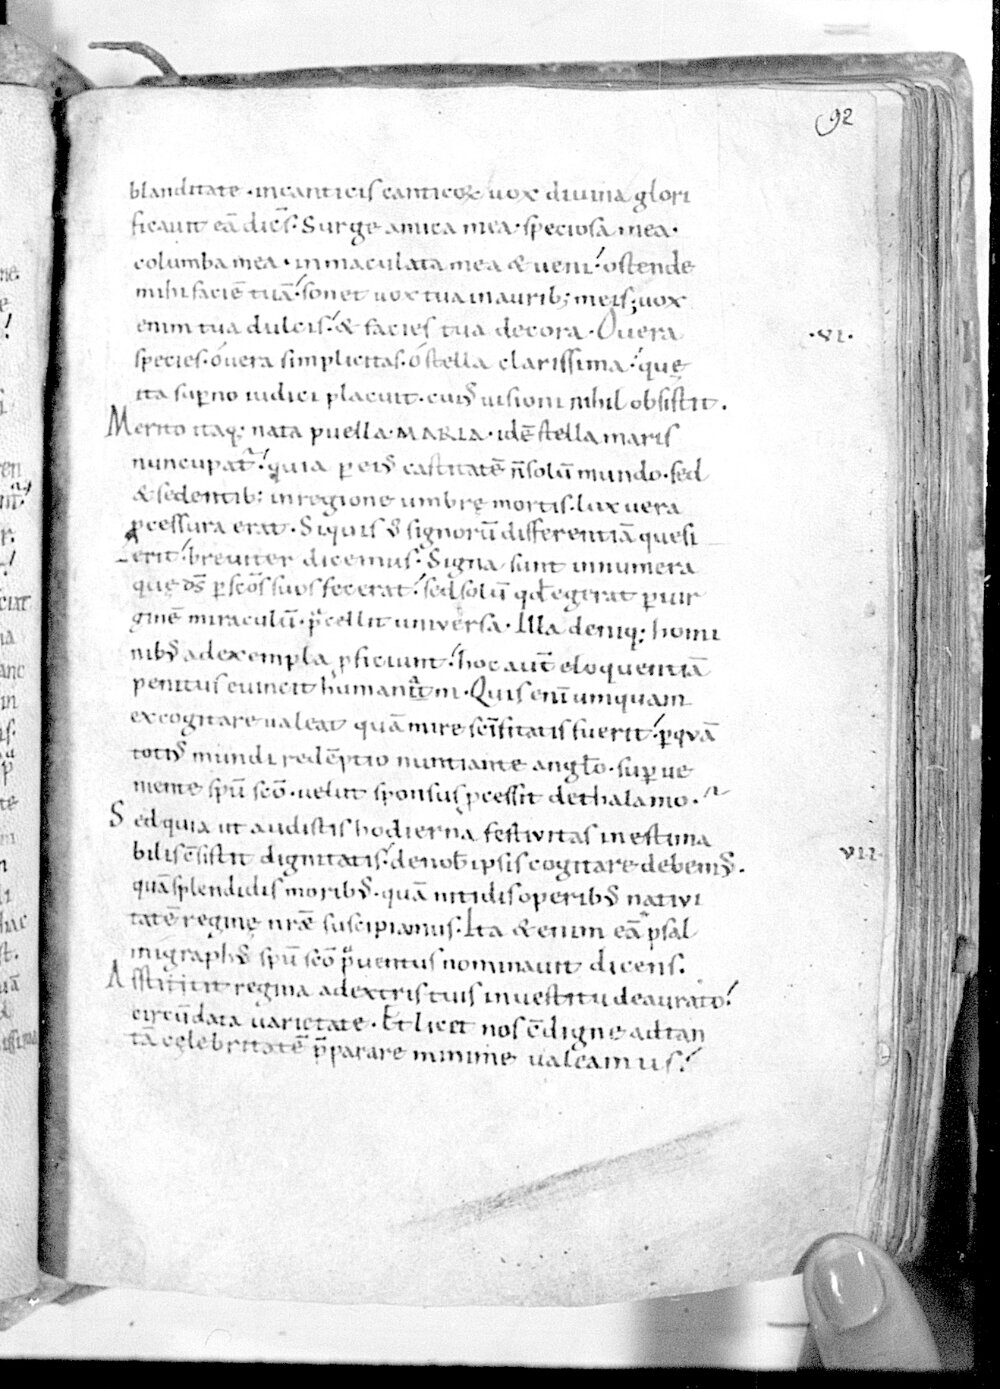 92
blanditate · incanticis canticoꝝ uox diuina glori
ficauit eā dicēs · Surge amica mea · speciosa mea ·
columba mea · inmaculata mea & ueni! ostende
mihi faciē tuā! sonet uox tua inaurib; meis; uox
enim tua dulcis! & facies tua decora · O uera
·VI·
species · o uera simplicitas · o stella clarissima! quę
ita suꝑno iudici placuit · cuiꝰ uisioni nihil obsistit .
Merito itaq; nata puella · MARIA · idē stella maris
nuncupat᷑! quia ꝑ eiꝰ castitatē n̄ solū mundo · sed
& sedentib; inregione umbrę mortis · lux uera
ꝓcessura erat · Siquis ū signorū differentiā quesi
erit! breuiter dicemus · Signa sunt innumera
quę d̄s ꝑ sc̄os suos fecerat! sed solū qd̄ egerat ꝑ uir
ginē miraculū · p̄cellit uniuersa · Illa deniq; homi
nibꝰ adexempla ꝓficiunt! hoc aut̄ eloquentiā
penitus euincit humanitatem · Quis eni umquam
excogitare ualeat quā mire sc̄issitatis fuerit! ꝑ quā
totiꝰ mundi redēptio nuntiante angl̄o · suꝑue
niente spū sc̄o · uelut sponsus ꝓcessit dethalamo .
Sed quia ut audistis hodierna festiuitas inestima
bilis c̄sistit dignitatis! denob̄ ipsis cogitare debemꝰ .
VII·
quā splendidis moribꝰ · quā nitidis operibꝰ natiui
tatē reginę nr̄ę suscipiamus · Ita & enim eā psal
migraphꝰ spū sc̄o p̄uentus nominauit dicens .
Asstitit regina adextris tuis inuestitu deaurato!
circūdata uarietate · Et licet nos c̄digne adtan
tā celebritatē p̄parare minime ualeamus!